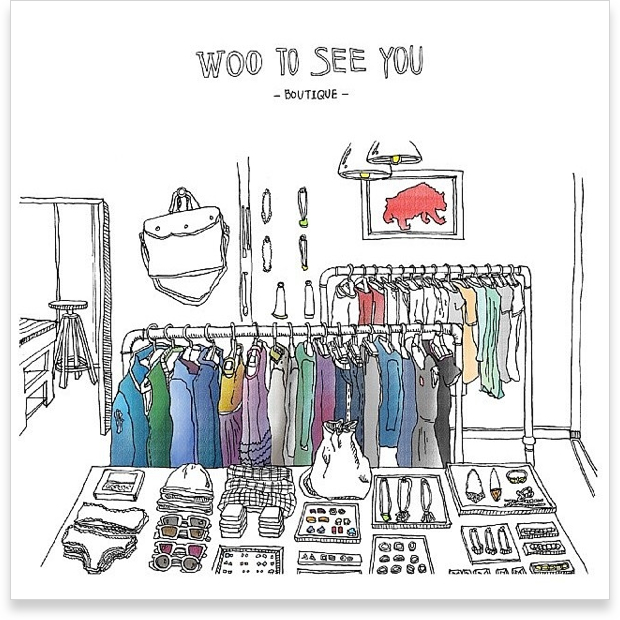 WOO TO SEE YOU
- BOUTIQUE -